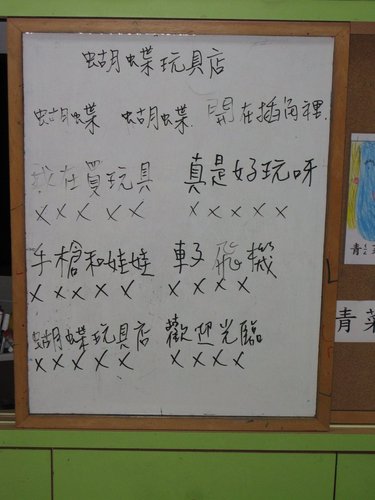 蝴蝶玩具店
蝴蝶 蝴蝶 開在插角裡
我在買玩具 真是好玩呀
X X X X X X X X X X
手槍和娃娃 車子 飛機
X X X X X X X X X
蝴蝶玩具店 歡迎光臨
X X X X X X X X X
青
青菜